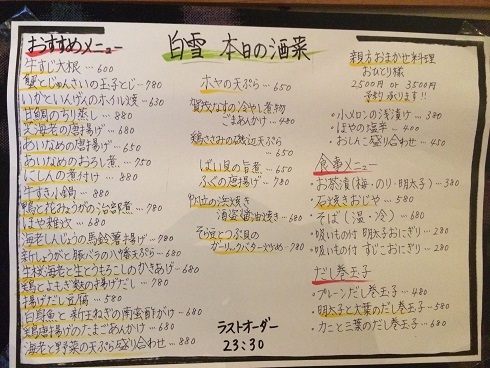 白雪 本日の酒菜
おすすめメニュー
牛すじ大根 … 600
蟹とじゅんさいの玉子とじ … 780
いかといんげん入のホイル焼 … 630
甘鯛のちり蒸し … 880
天海老の唐揚げ … 680
あいなめの唐揚げ … 650
あいなめのおろし煮 … 750
にしんの煮付け … 880
牛すき小鍋 … 880
鴨と花みょうがの治部煮 … 780
ほや雑炊 … 680
海老しんじょうの馬鈴薯揚げ … 780
新しょうがと豚バラの八幡天ぷら … 680
桜海老と生とうもろこしのかきあげ … 680
鶏とよもぎ麩の揚げだし … 780
揚げだし豆腐 … 580
白身魚と新玉ねぎの南蛮酢がけ … 680
鶏唐揚げのたまごあんかけ … 680
海老と野菜の天ぷら盛り合わせ … 880
ホヤの天ぷら … 650
賀茂なすの冷やし煮物
ごまあんかけ … 480
鶏ささみの磯辺天ぷら
… 650
ばい貝の旨煮 … 650
ふぐの唐揚げ … 780
帆立の浜焼き
演盗醤油焼き … 680
そら豆とつぶ貝の
ガーリックバター炒め … 780
ラストオーダー
23:30
親方おまかせ料理
おひとり様
2500円 or 3500円
予約承ります!!
・小メロンの浅漬け … 380
・ほやの塩辛 … 400
・おしんこ盛り合わせ … 450
食事メニュー
・お茶漬(梅・のり・明太子) … 380
・石焼きおじや … 580
・そば(温・冷) … 680
・吸いもの付 明太子おにぎり … 280
・吸いもの付 すじこおにぎり … 280
だし巻玉子
・プレーンだし巻玉子 … 480
・明太子と大葉のだし巻玉子 … 580
・カニと三葉のだし巻玉子 … 680